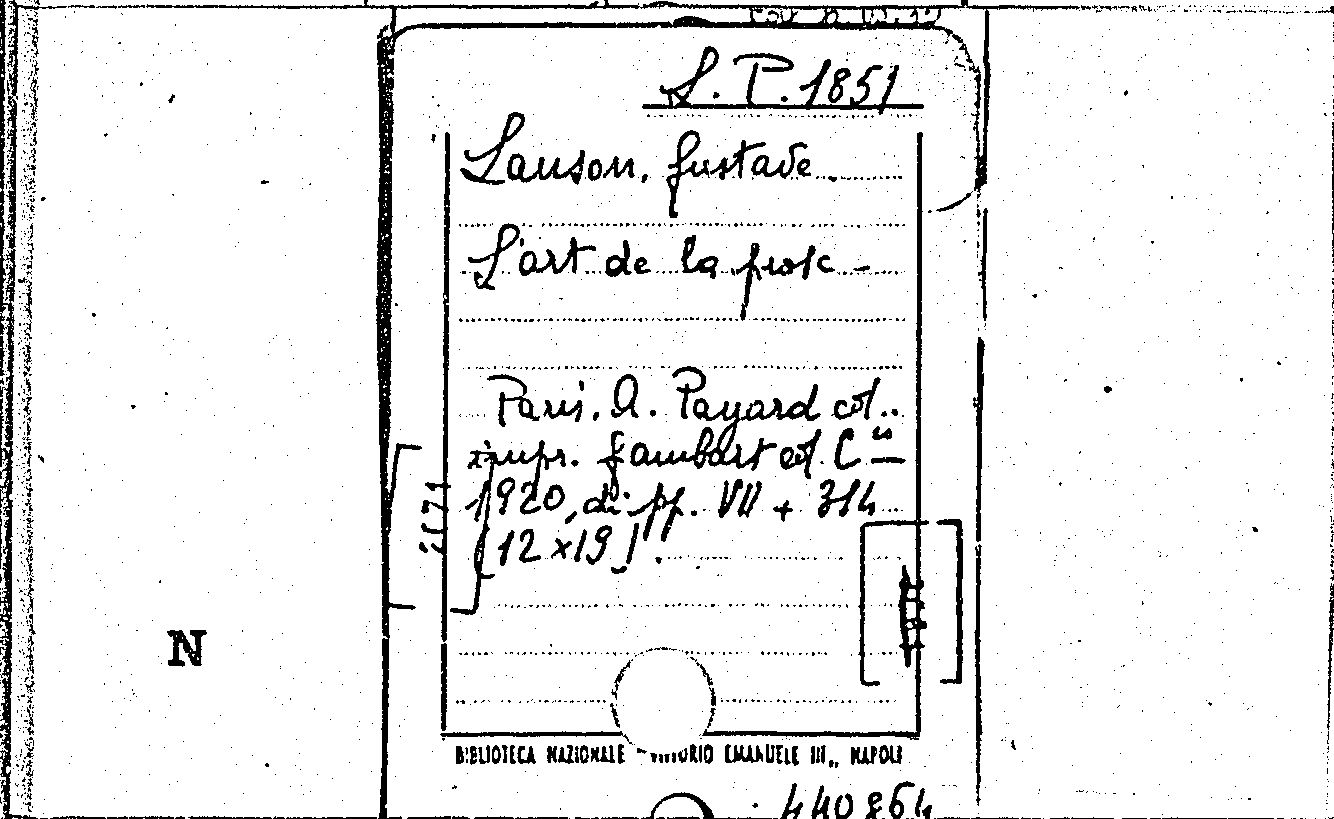 S. P. 1851
Lanson, Gustave.
L'art de la prose -
Paris. A. Payard et..
impr. Gambart et C.ie
1920, di pp. VII + 314
[12 x 19].
N
BIBLIOTECA NAZIONALE - VITTORIO EMANUELE III., NAPOLI
440864